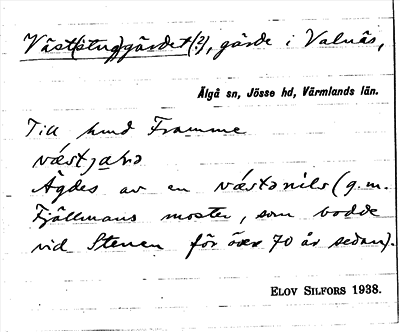 Väst(stug)gärdet(?), gärde i Valnäs,
Älgå sn, Jösse hd, Värmlands län.
Till hmd Framme
Ägdes av en västənils (g.m.
Fjällmans moster, som bodde
vid Stenen för över 70 år sedan).
ELOV SILFORS 1938.